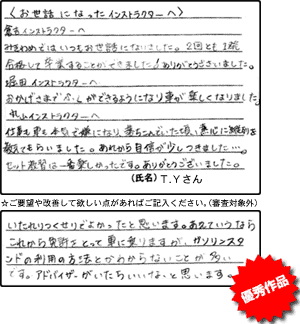 〈お世話になったインストラクターへ〉
倉吉インストラクターへ
みきわめではいつもお世話になりました。2回とも1発
合格して卒業することができました!ありがとうございました。
堀田インストラクターへ
おかげさまで ができるようになり車が楽しくなりました
インストラクターへ
仕事も車も本気で嫌になり、落ちこんでいた頃、熱心に
教えてもらいました。あれから自信が少しつきました…。
セット教習は一番楽しかったです。ありがとうございました。
(氏名) T.Yさん
☆ご要望や改善して欲しい点があればご記入ください。(審査対象外)
いたれりつくせりでよかったと思います。あえていうなら
これから免許をとって車に乗りますが、ガソリンスタ
ンドの利用の方法とかわからないことが多い
です。アドバイザーがいたらいいな、と思います。
優秀作品